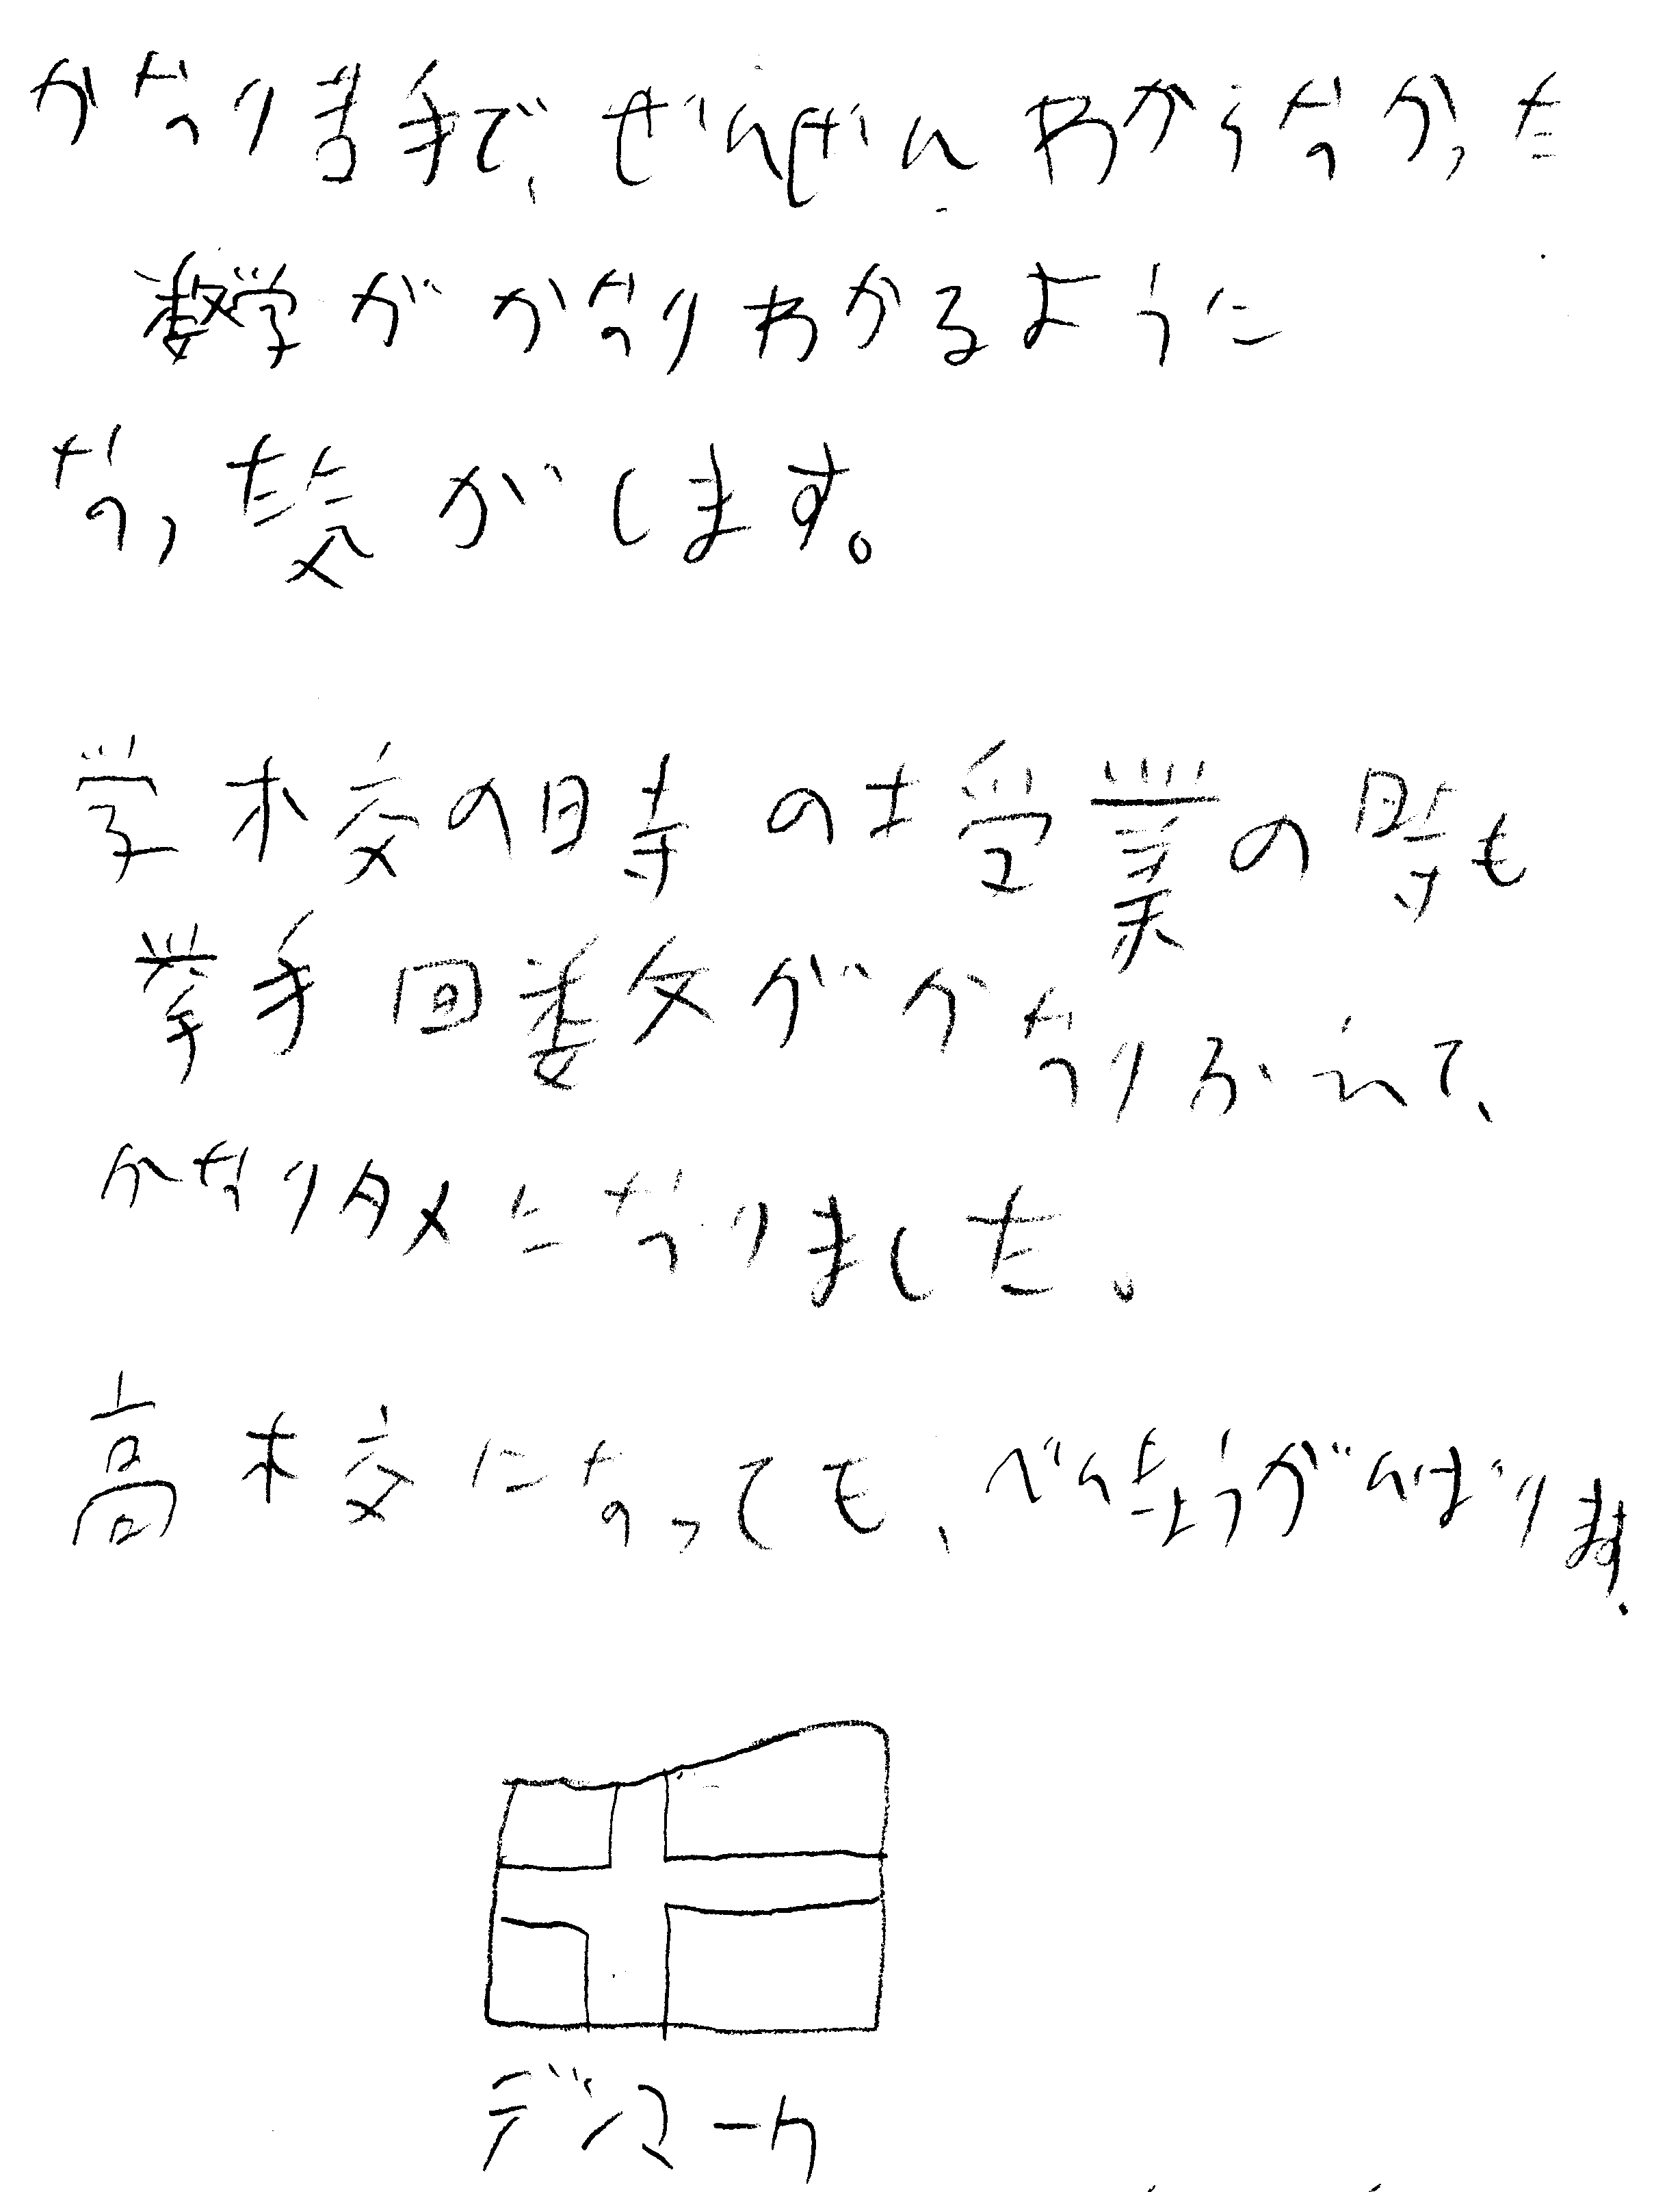 かなり苦手で、ぜんぜんわからなかった
数学がかなりわかるように
なった気がします。
学校の時の授業の時も
挙手回数がかなりふえて、
かなりタメになりました。
高校になっても、べんきょうがんばります.
デンマーク